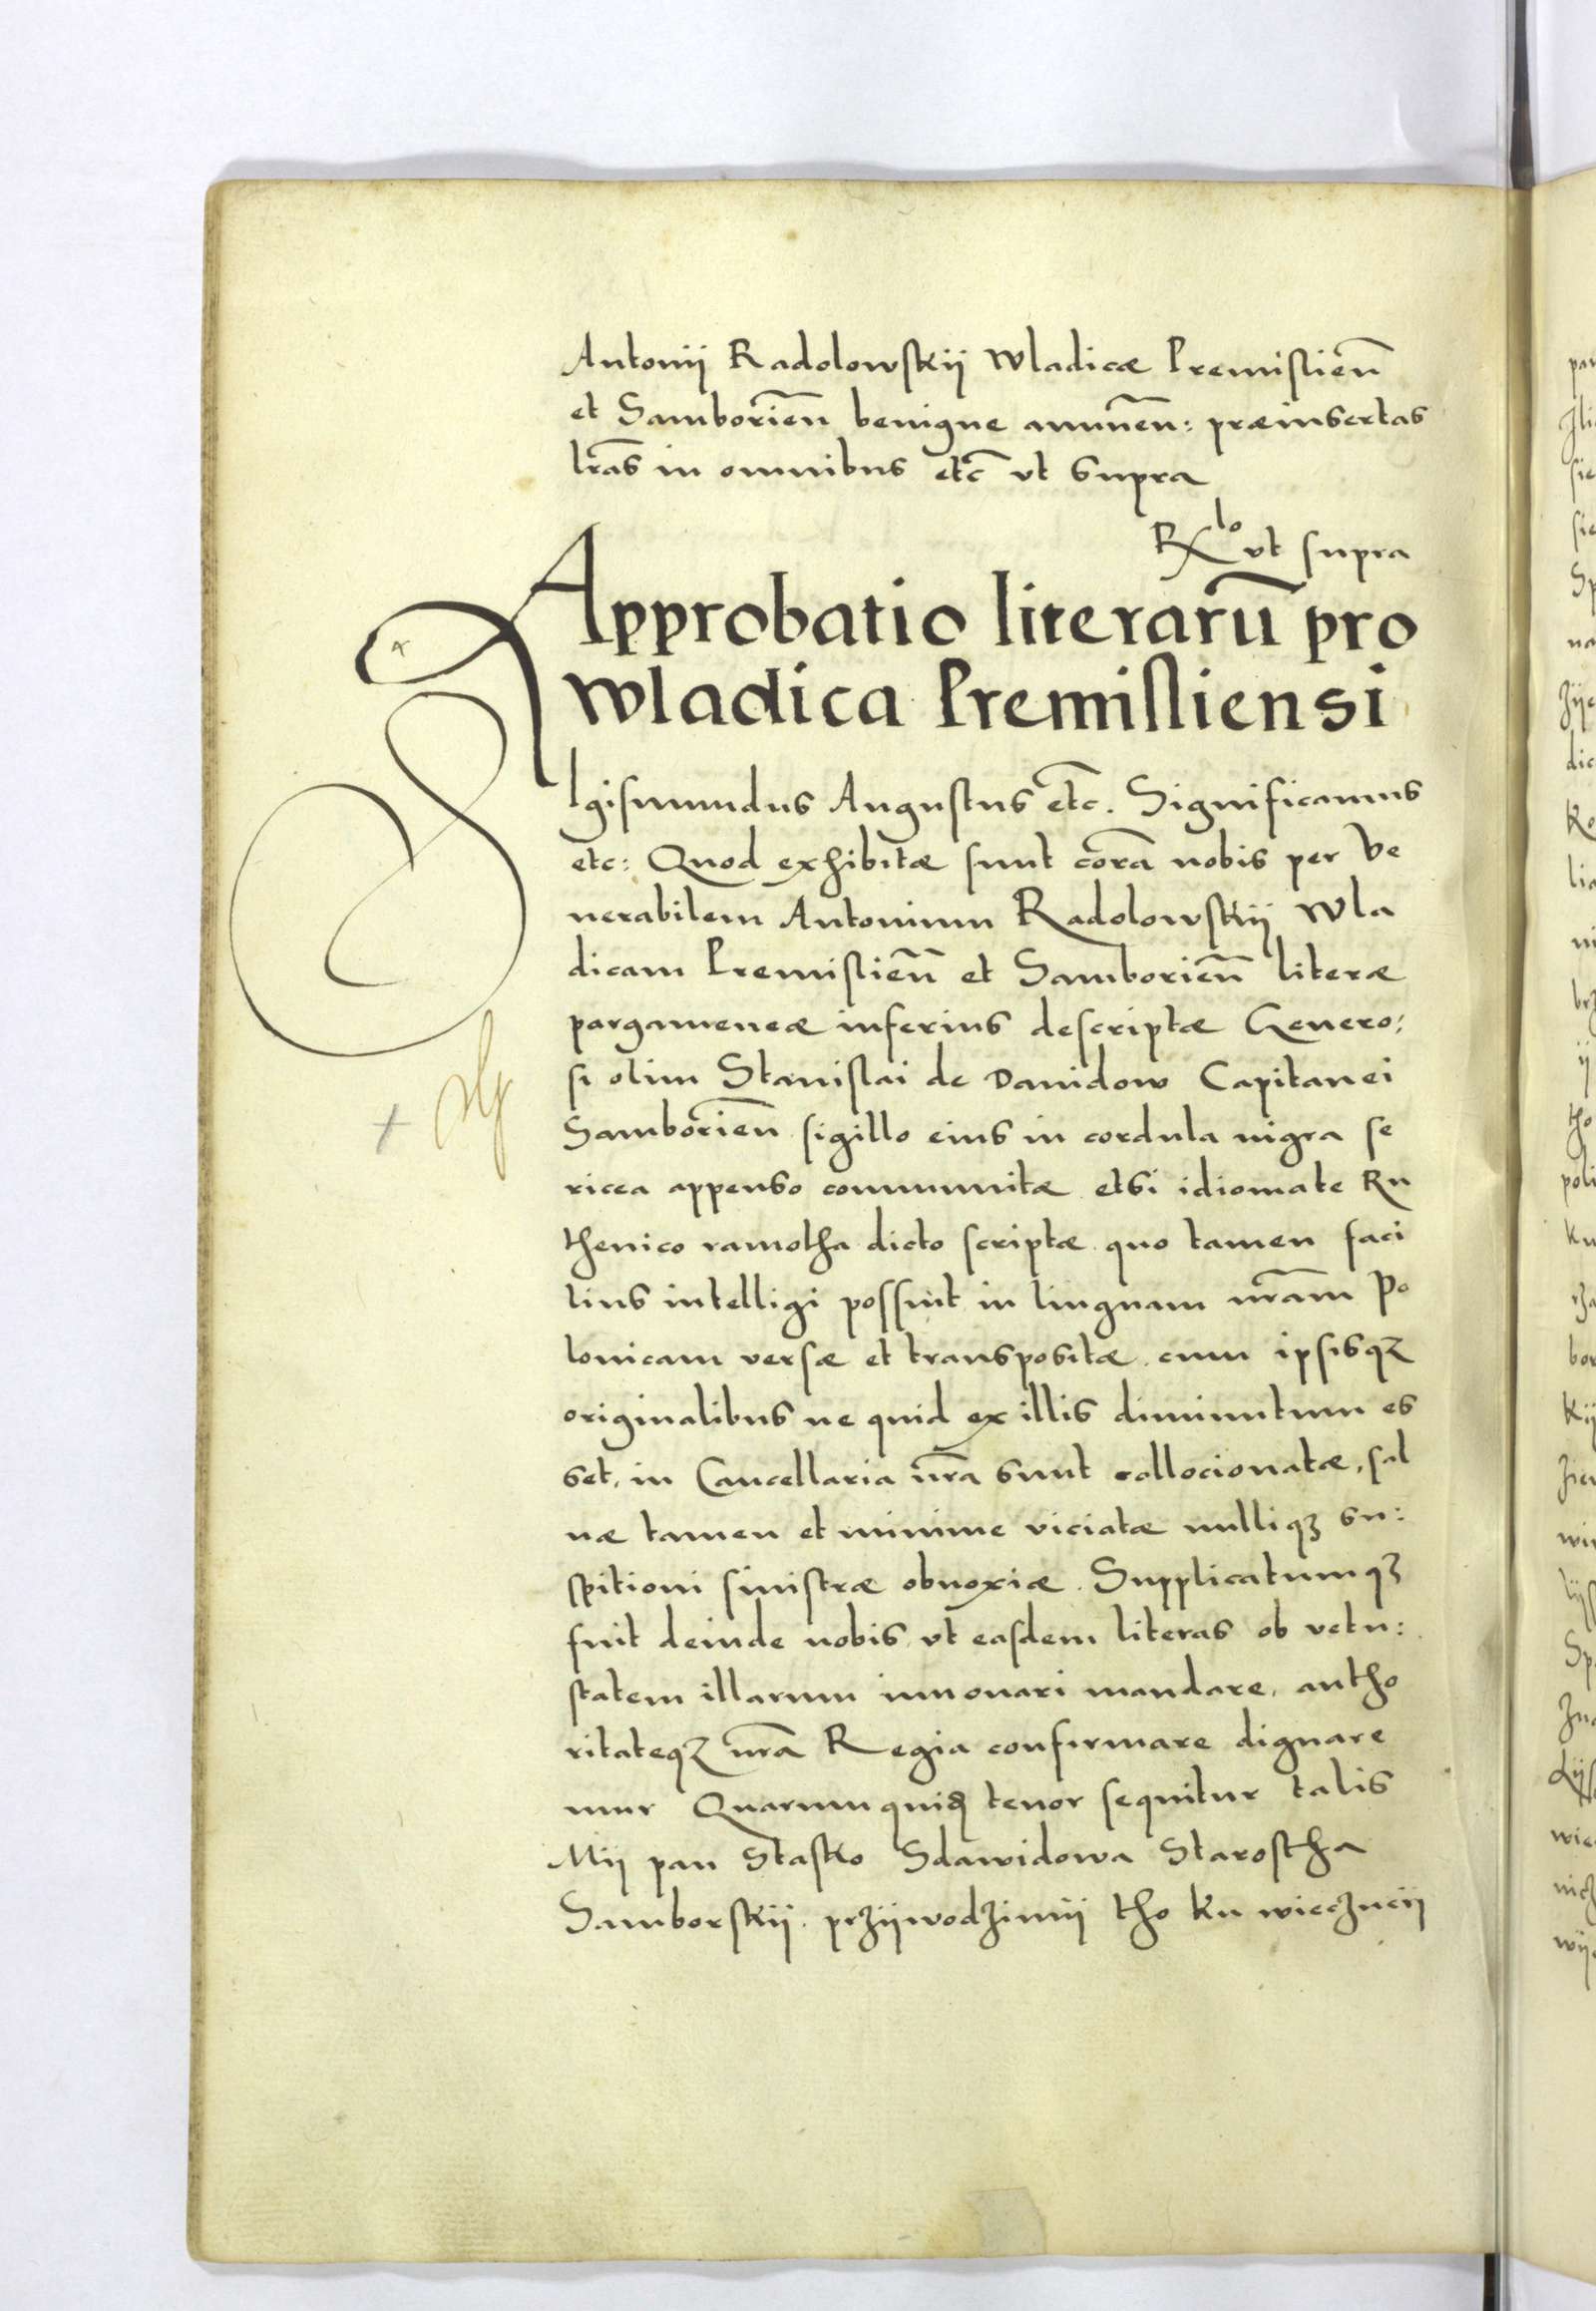 Antonij Radolowskij Wladicæ Premislień
et Samborień benigne annueń: præinsertas
lr̃as in omnibus etc̃ vt supra
Rx lo vt supra
Approbatio literarū pro
Wladica Premisliensi
Sigismundus Augustus etc̃. Significamus
etc: Quod exhibitæ sunt corā nobis per Ve
nerabilem Antonium Radolowskij Wla
dicam Premislień et Samborień literæ
pargameneæ inferius descriptæ Genero:
si olim Stanislai de Dauidow Capitanei
Samborień sigillo eius in cordula nigra se
ricea appenso communitæ etsi idiomate Ru
thenico ramotha dicto scriptæ quo tamen faci
lius intelligi possint in linguam nr̃am Po
lonicam versæ et transpositæ cum ipsisqꝫ
originalibus ne quid ex illis diminutum es
set, in Cancellaria nr̃a sunt collocionatæ, sal
uæ tamen et minime viciatæ nulliqꝫ su:
spitioni sinistræ obnoxiæ. Supplicatumqꝫ
fuit deinde nobis vt easdem literas ob vetu:
statem illarum innouari mandare, autho
ritateqꝫ nr̃a Regia confirmare dignare
mur Quarum quidꝫ tenor sequitur talis
Mij pan Stasko Sdawidowa Starostha
Samborskij. przijwodzimij tho ku wieczneij